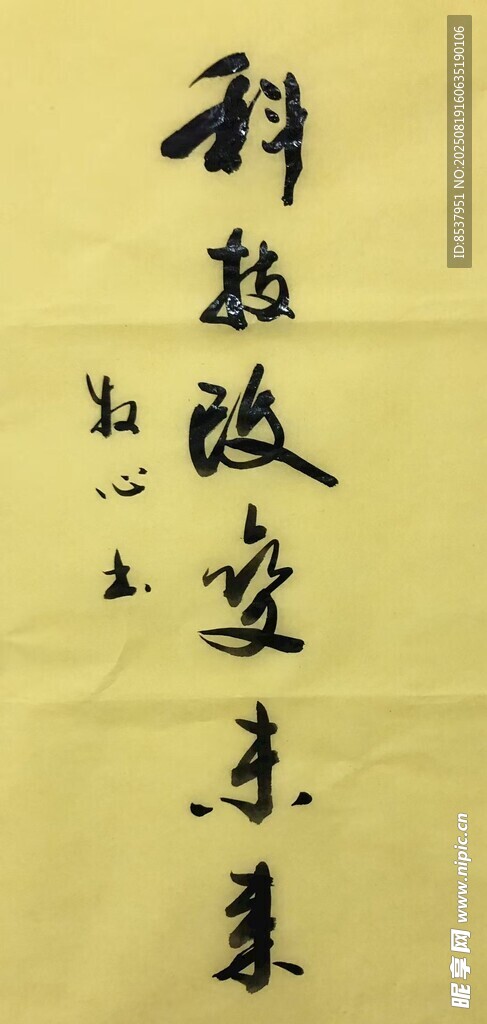 科技改变未来
牧心书
ID:8537951 NO:20250819160635190106
昵享网 www.nipic.cn